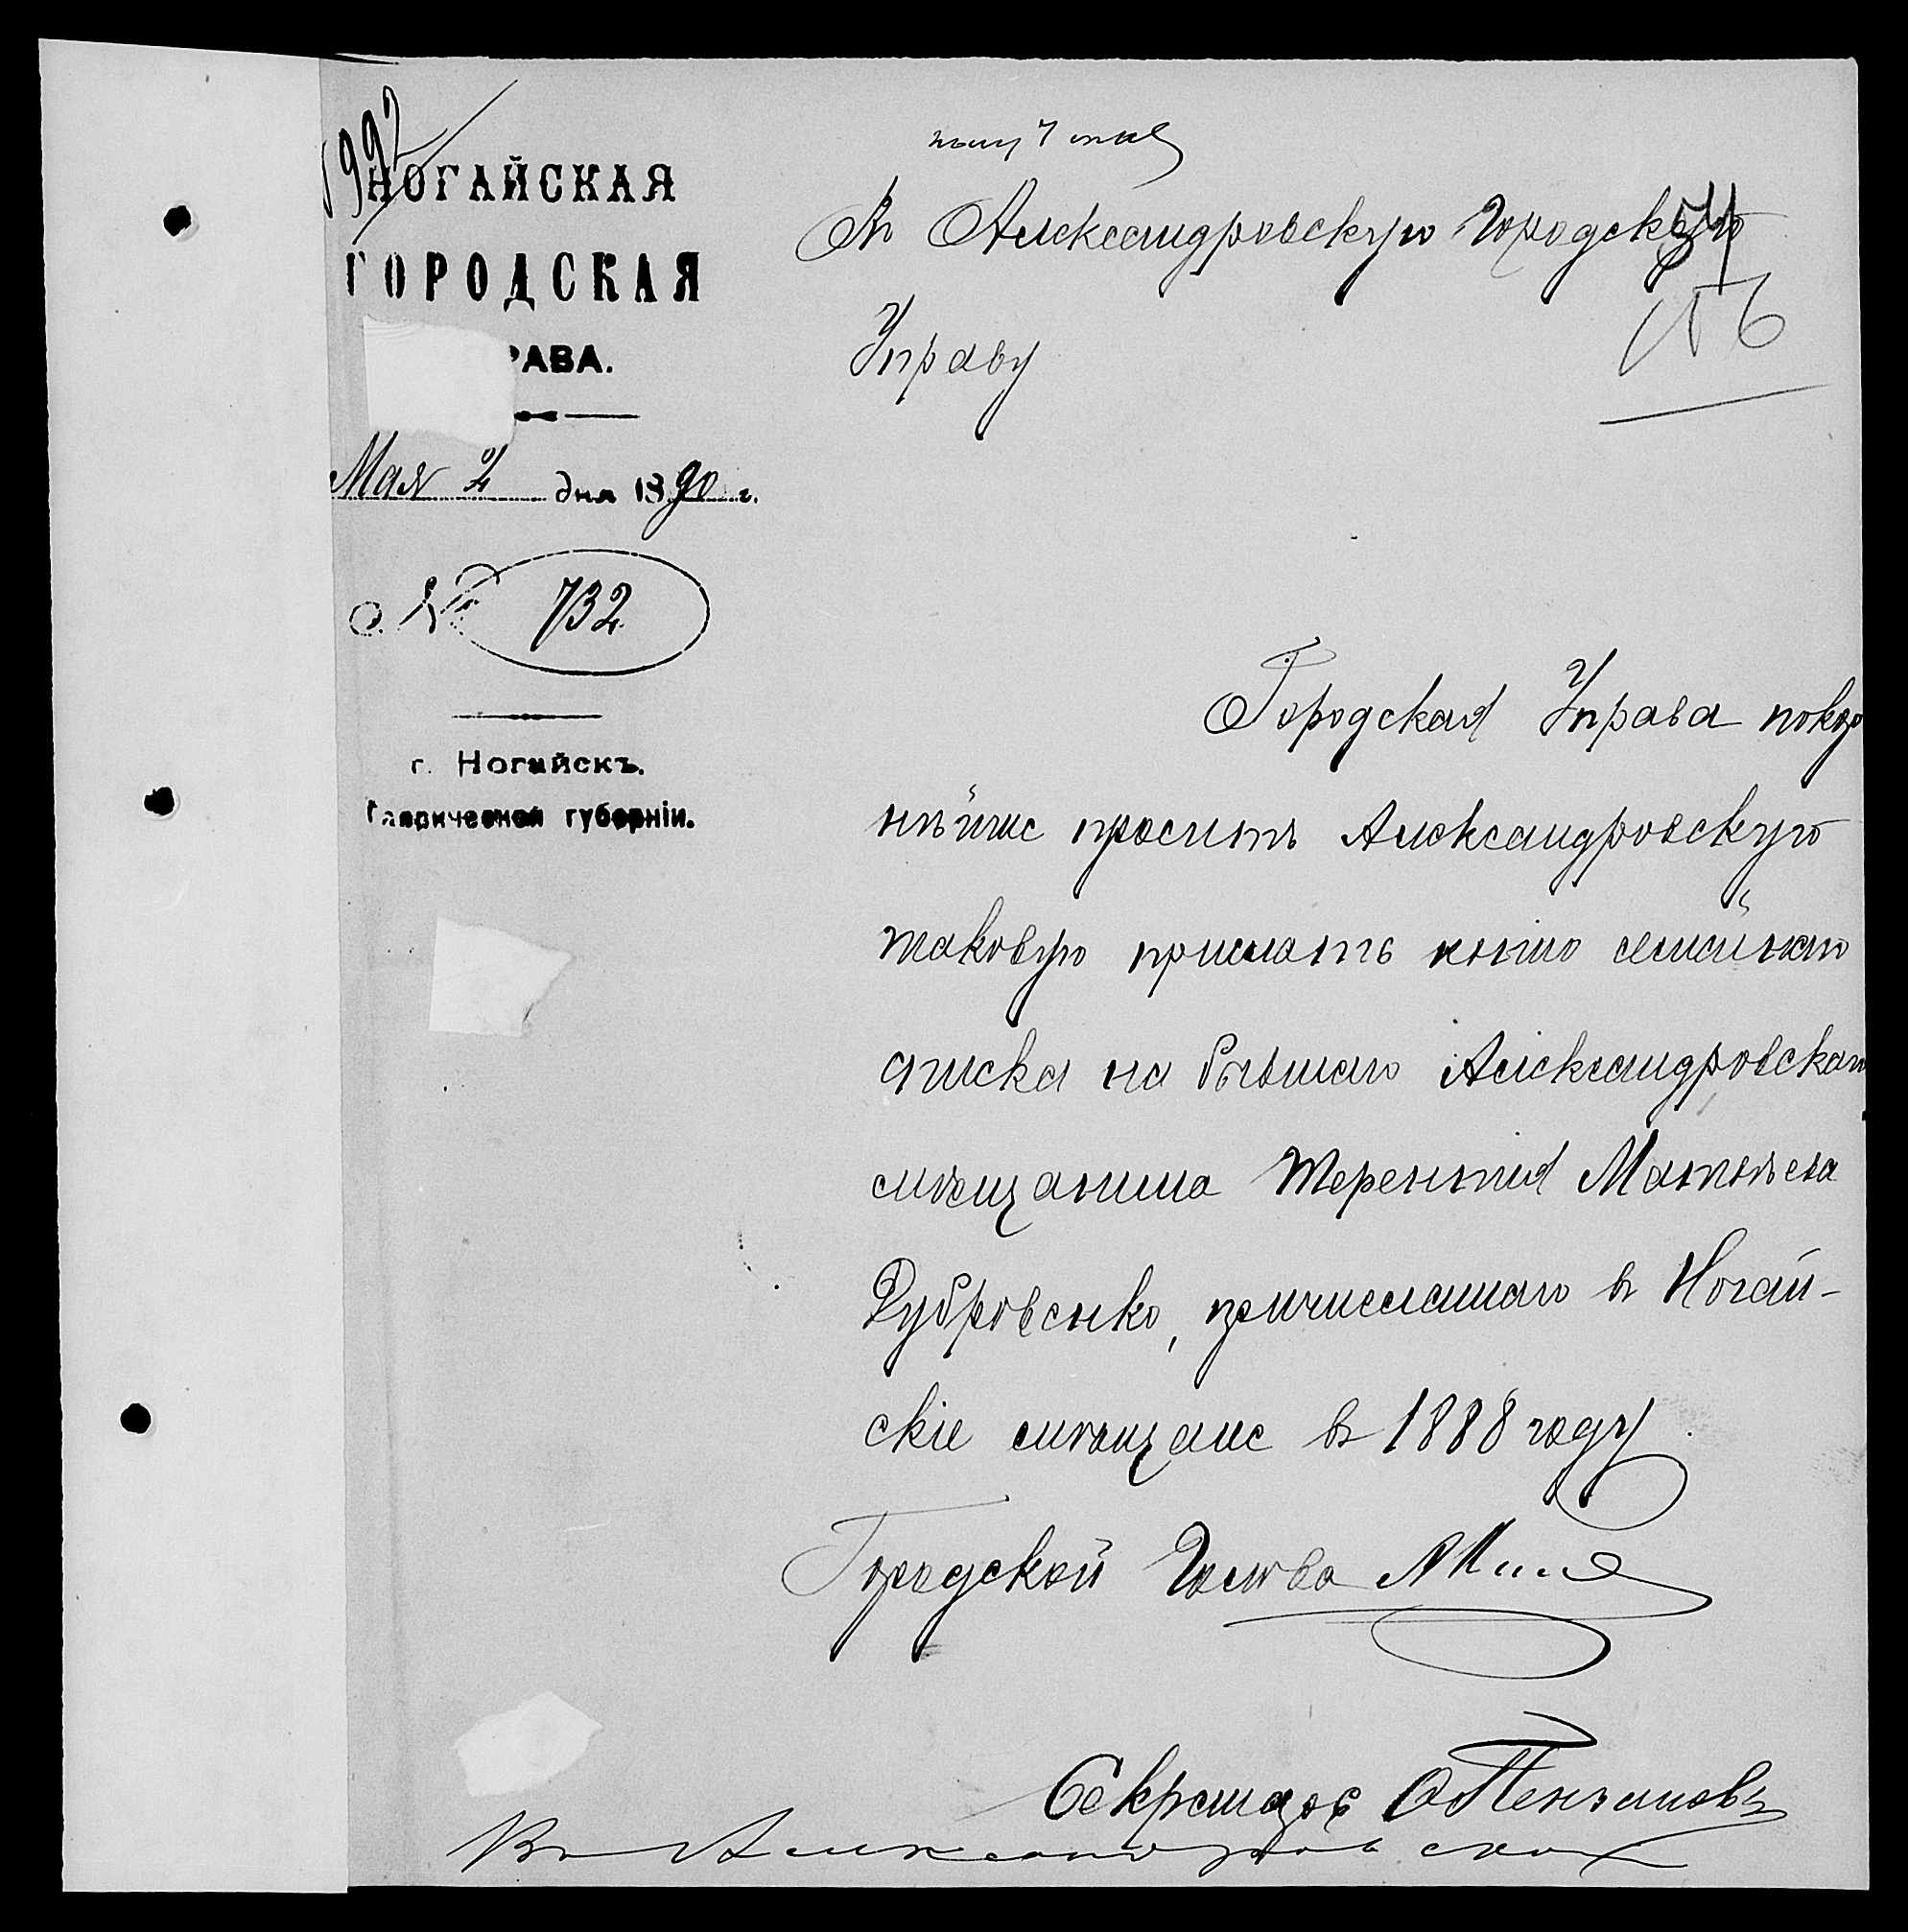 1992
НОГАЙСКАЯ
ГОРОДСКАЯ
РАВА.
Мая 2 дня 1890 г.
№ 732
г. Ногайскъ.
Таврической губерніи.
54
Въ Александровскую Городскую
Управу
Городская Управа покор
нѣйше проситъ Александровскую
таковую прислать копію семейнаго
списка на бывшаго Александровскаго
мѣщанина Терентія Матвѣева
Дубровенко, причисленнаго въ Ногай-
скіе мѣщане въ 1888 году
Городской Голова
Секретарь
Въ Александровскъ